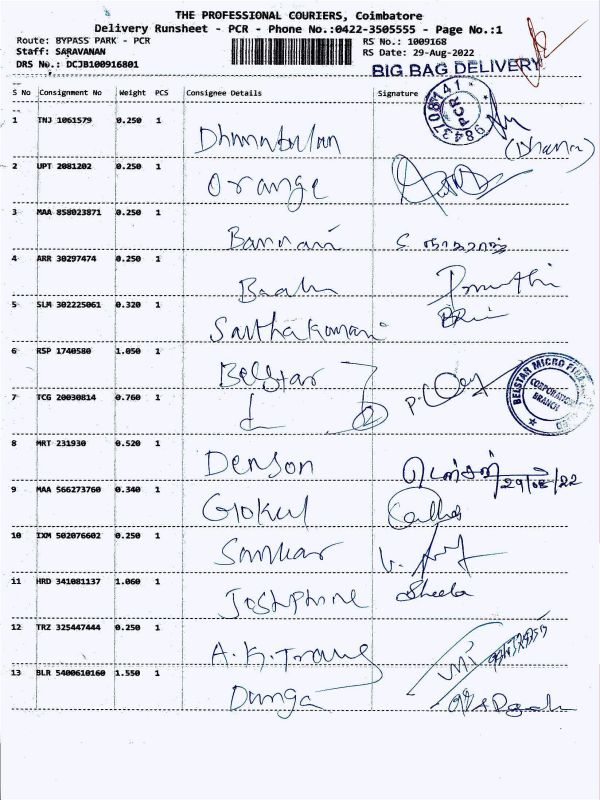 THE PROFESSIONAL COURIERS, Coimbatore
Delivery Runsheet - PCR - Phone No.:0422-3505555 - Page No.:1
Route: BYPASS PARK - PCR RS No.: 1009168
Staff: SARAVANAN RS Date: 29-Aug-2022
DRS No.: DCJB100916801
BIG BAG DELIVERY
S No Consignment No Weight PCS Consignee Details Signature
PCR
1 TNJ 1061579 0.250 1
2 UPT 2081202 0.250 1 Orange
3 MAA 858023871 0.250 1 Bannari
4 ARR 30297474 0.250 1
5 SLM 302225061 0.320 1
6 RSP 1740580 1.050 1 Belstar
BELSTAR MICRO
CORPORATION
BRANCH
7 TCG 20030814 0.760 1
8 MRT 231930 0.520 1 Denson டென்சன் 29/08/22
9 MAA 566273760 0.340 1 Gokul
10 IXM 502076602 0.250 1 Sankar
11 HRD 341081137 1.060 1 Josphine Sheela
12 TRZ 325447444 0.250 1 A.K.
13 BLR 5400610160 1.550 1 Durga